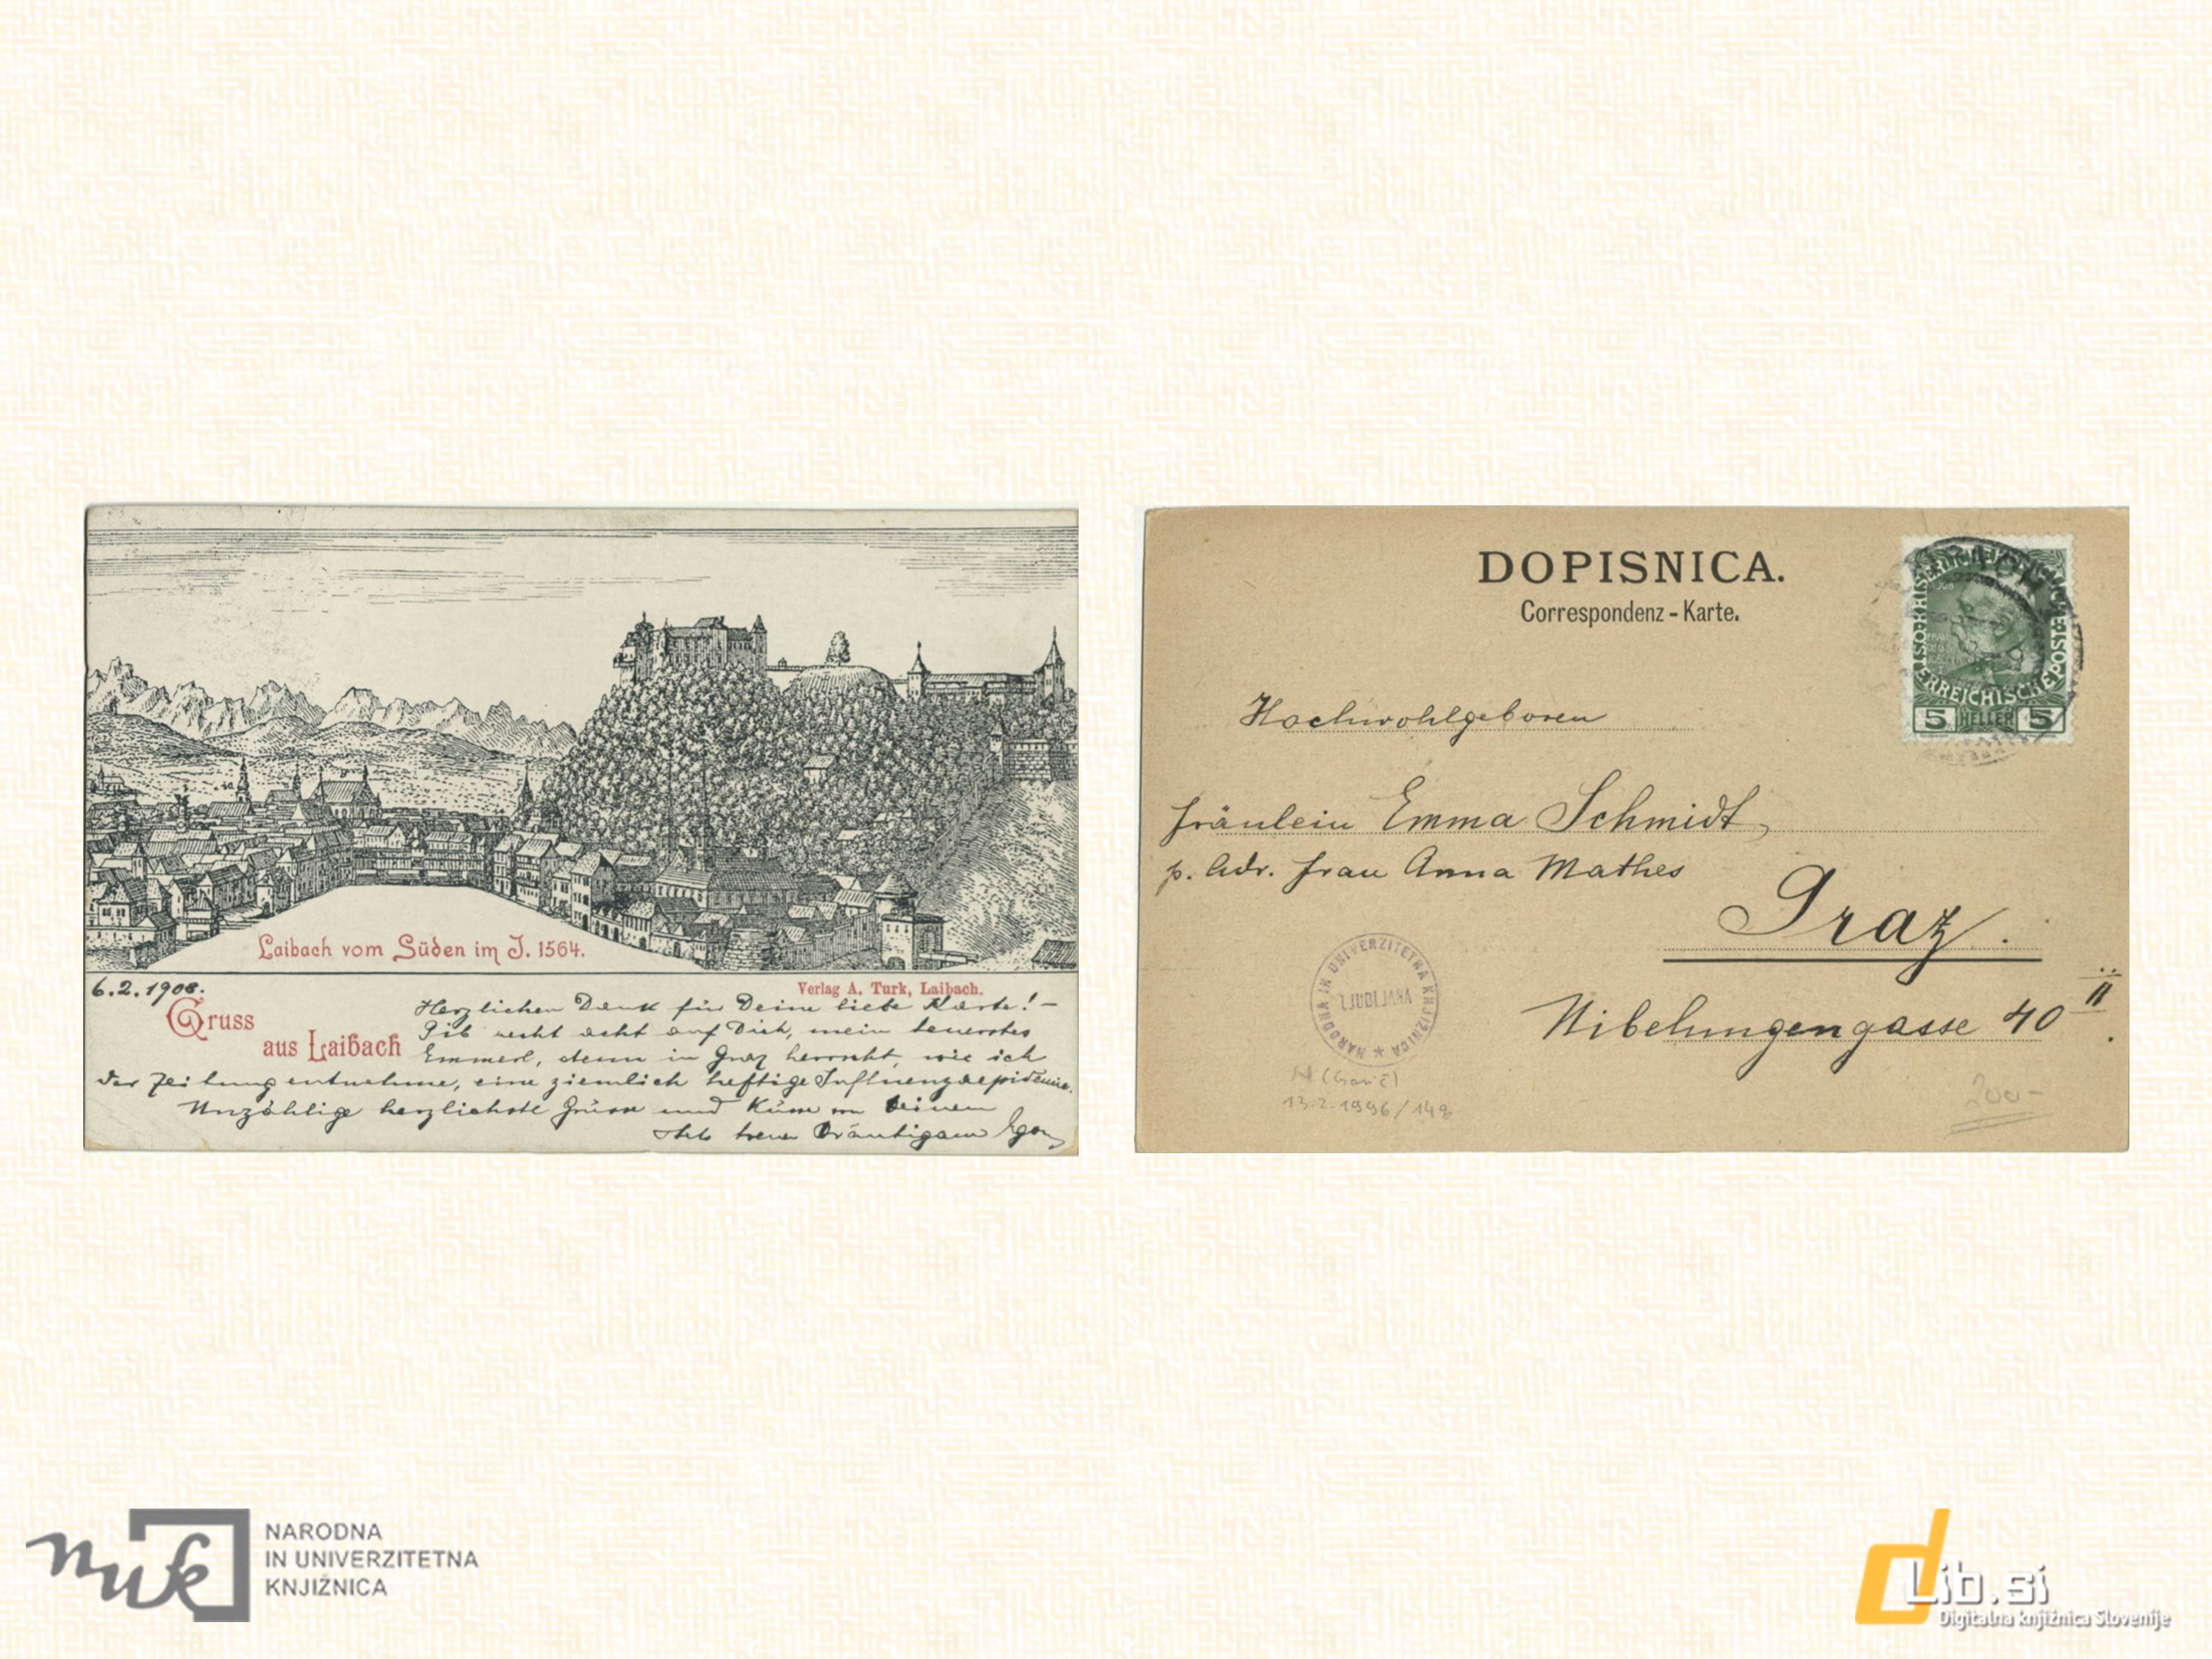 Laibach vom Süden im J. 1564.
6.2.1908.
Verlag A. Turk, Laibach.
Gruss
aus Laibach
Herzlichen Dank für Deine liebe Karte! –
Gib recht acht auf Dich, mein teuerstes
Emmerl, denn in Graz herrscht, wie ich
der Zeitung entnehme, eine ziemlich heftige Influenzaepidemie.
Unzählige herzlichste Grüsse und Küsse von Deinem
treuen Bräutigam Egon
DOPISNICA.
Correspondenz - Karte.
ÖSTERREICHISCHE
5 HELLER 5
Hochwohlgeboren
Fräulein Emma Schmidt
p. Adr. Frau Anna Mathes
Graz.
Nibelungengasse 40 II.
NARODNA IN UNIVERZITETNA KNJIŽNICA
LJUBLJANA
13.2.1996/148
200-
nuk
NARODNA
IN UNIVERZITETNA
KNJIŽNICA
dLib.si
Digitalna knjižnica Slovenije